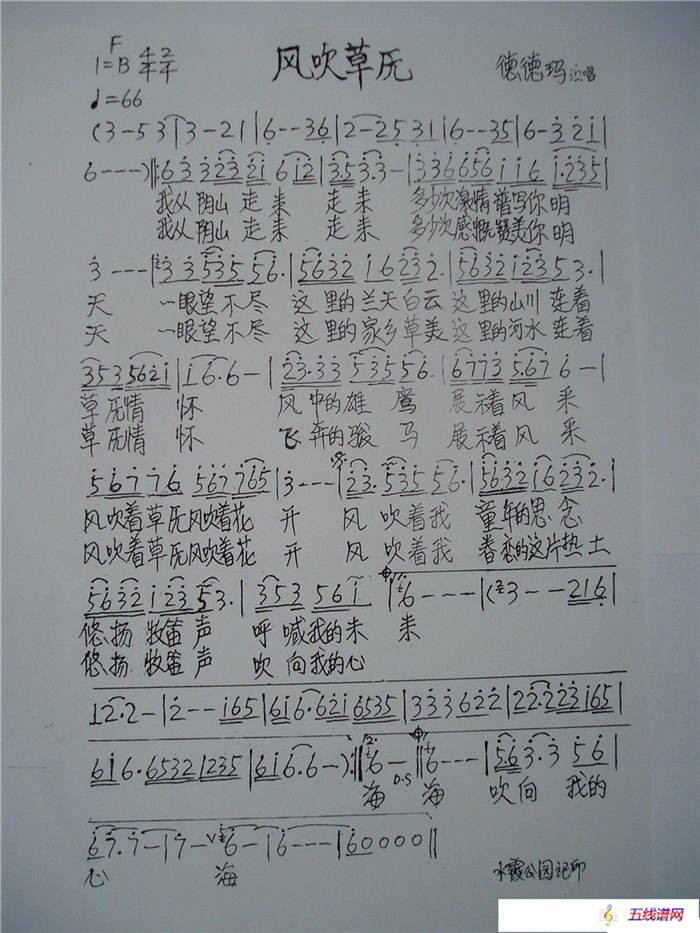 风吹草原
德德玛 演唱
F
1=B 4/4 2/4
♩=66
(3-53|3-21|6--36|2--2531|6--35|6-321|
6---)‖:6332321 612|353·3-|336656116 1·235|
我从阴山走来 走来 多少次激情谱写你明
我从阴山走来 走来 多少次感慨赞美你明
3---|3353556·|563216232·|56321235 3·|
天 一眼望不尽 这里的兰天白云 这里的山川连着
天 一眼望不尽 这里的家乡草美 这里的河水连着
3535621|16·6-|23·3353556·|6773 5·676-|
草原情 怀 风中的雄鹰 展示着风采
草原情 怀 飞奔的骏马 展示着风采
567776 567765|3---|23·535 56·|563216232·|
风吹着草原风吹着花 开 风吹着我 童年的思念
风吹着草原风吹着花 开 风吹着我 眷恋的这片热土
5632123 53·|353 561|6---|(3--216|
悠扬牧笛声 呼喊我的未 来
悠扬牧笛声 吹向我的心
12·2-|2--165|616·6216535|333622|22·223165|
616·6532 1235|616·6-):‖6-‖6---|5·63·3 56|
海 D.S 海 吹向 我的
67·7-|7-V6-|6---|60000‖
心 海
水霞公园记印
五线谱网